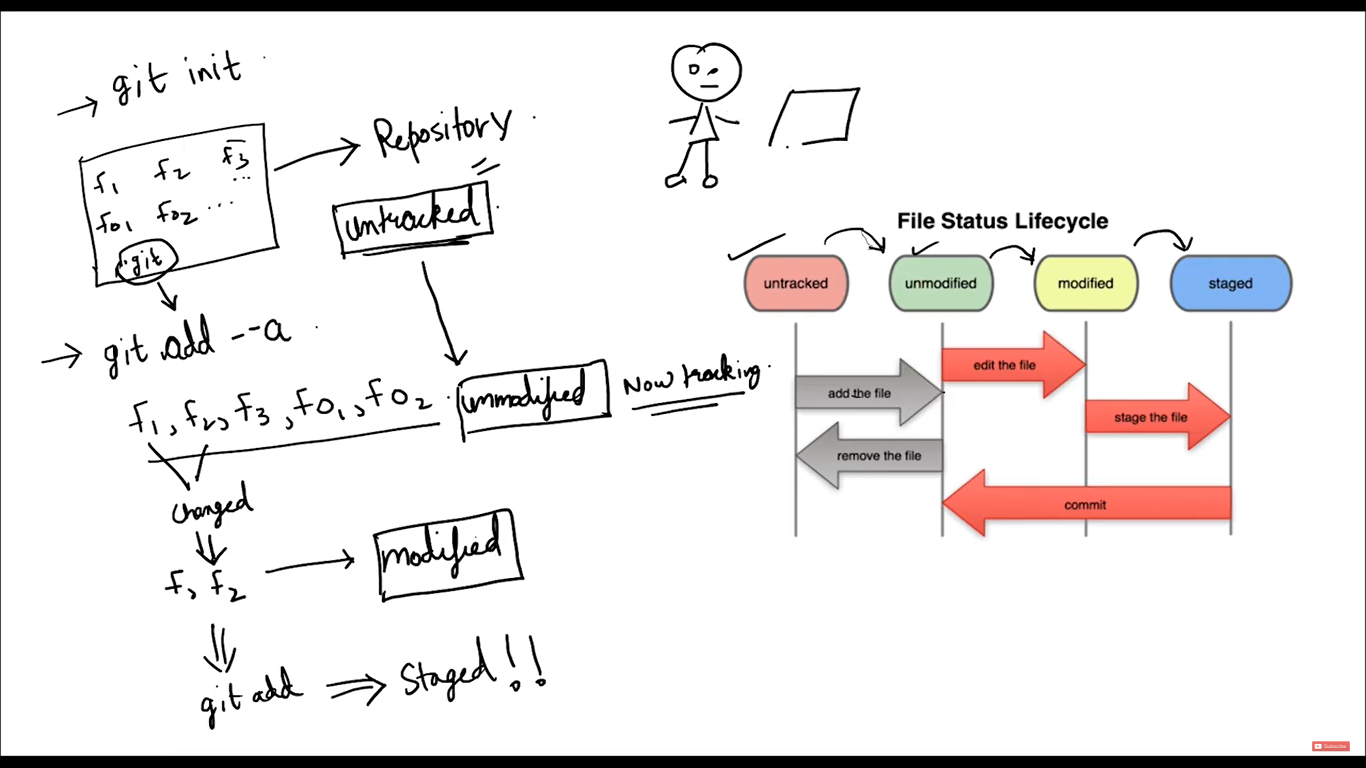 git init
f1 f2 f3
...
f01 f02 ...
.git
Repository
untracked
git add --a
f1, f2, f3, f01, f02
unmodified
Now tracking.
changed
f, f2
modified
git add
Staged!!
File Status Lifecycle
untracked unmodified modified staged
edit the file
add the file
stage the file
remove the file
commit
Subscribe